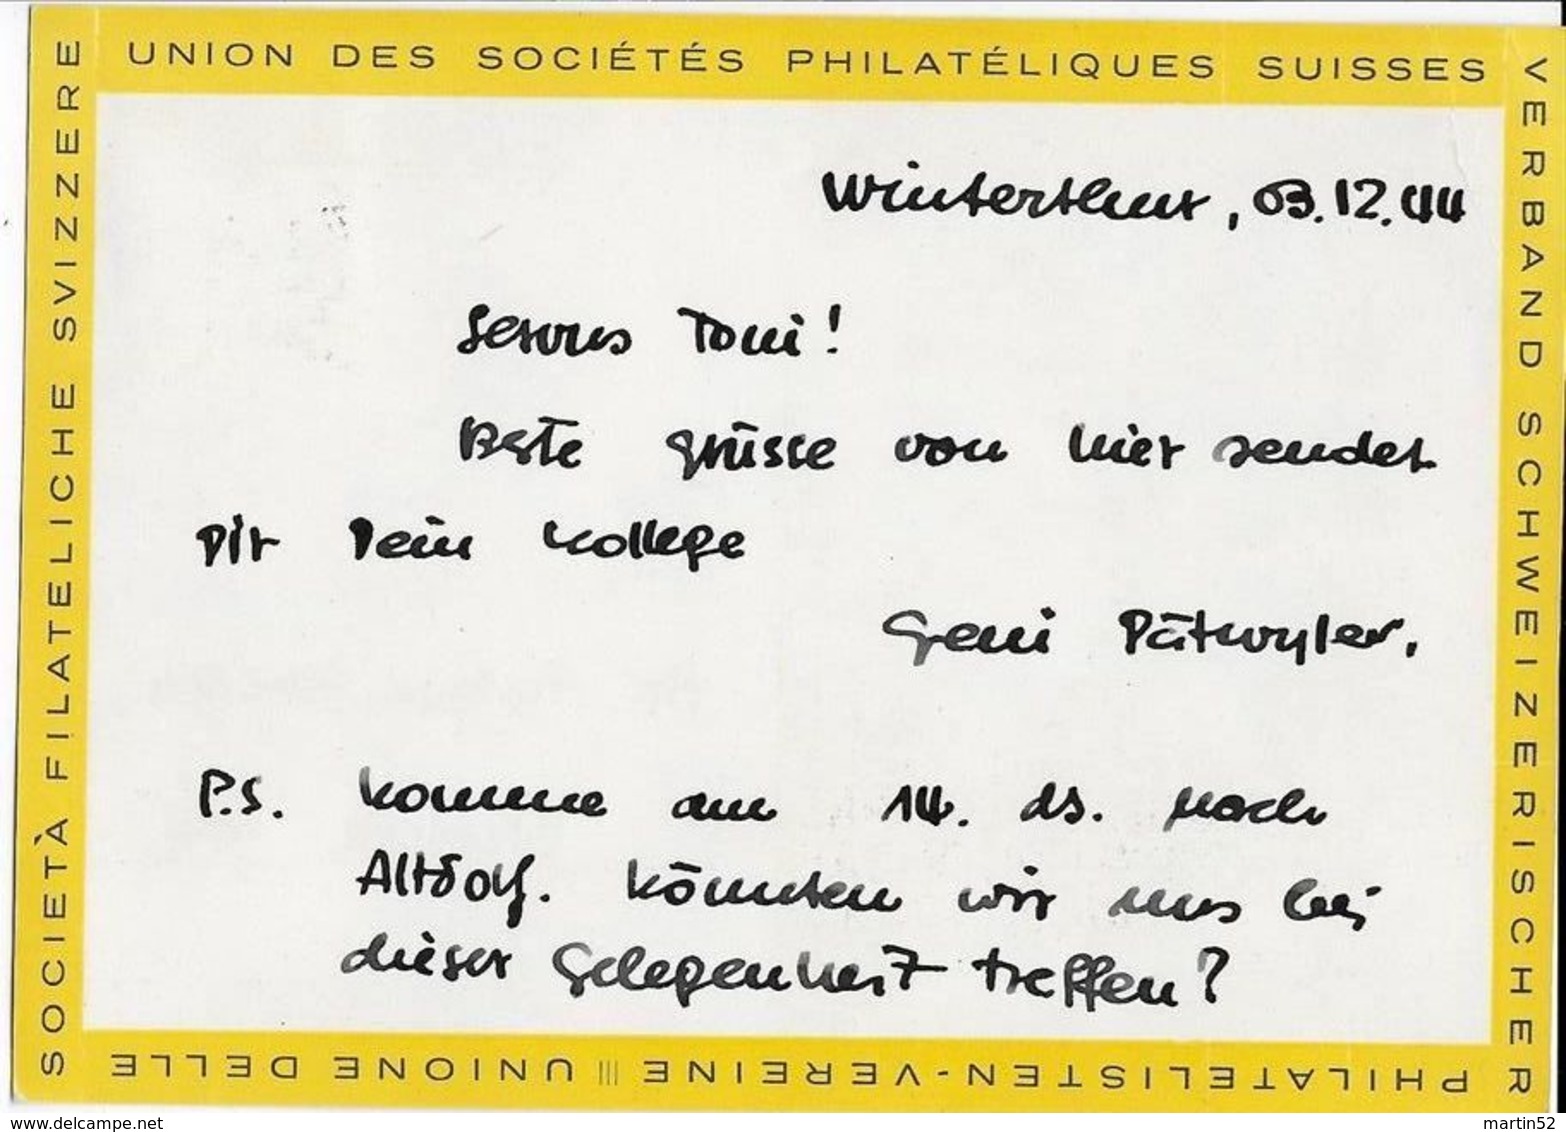 UNION DES SOCIÉTÉS PHILATÉLIQUES SUISSES
VERBAND SCHWEIZERISCHER
PHILATELISTEN-VEREINE ||| UNIONE DELLE
SOCIETÀ FILATELICHE SVIZZERE
Winterthur, 03.12.44
Servus Toni!
Beste Grüsse von hier sendet
Dir Dein Kollege
Geni Pätwyler.
P.S. Komme am 14. ds. nach
Altdorf. Könnten wir uns bei
dieser Gelegenheit treffen?
www.delcampe.net
martin52